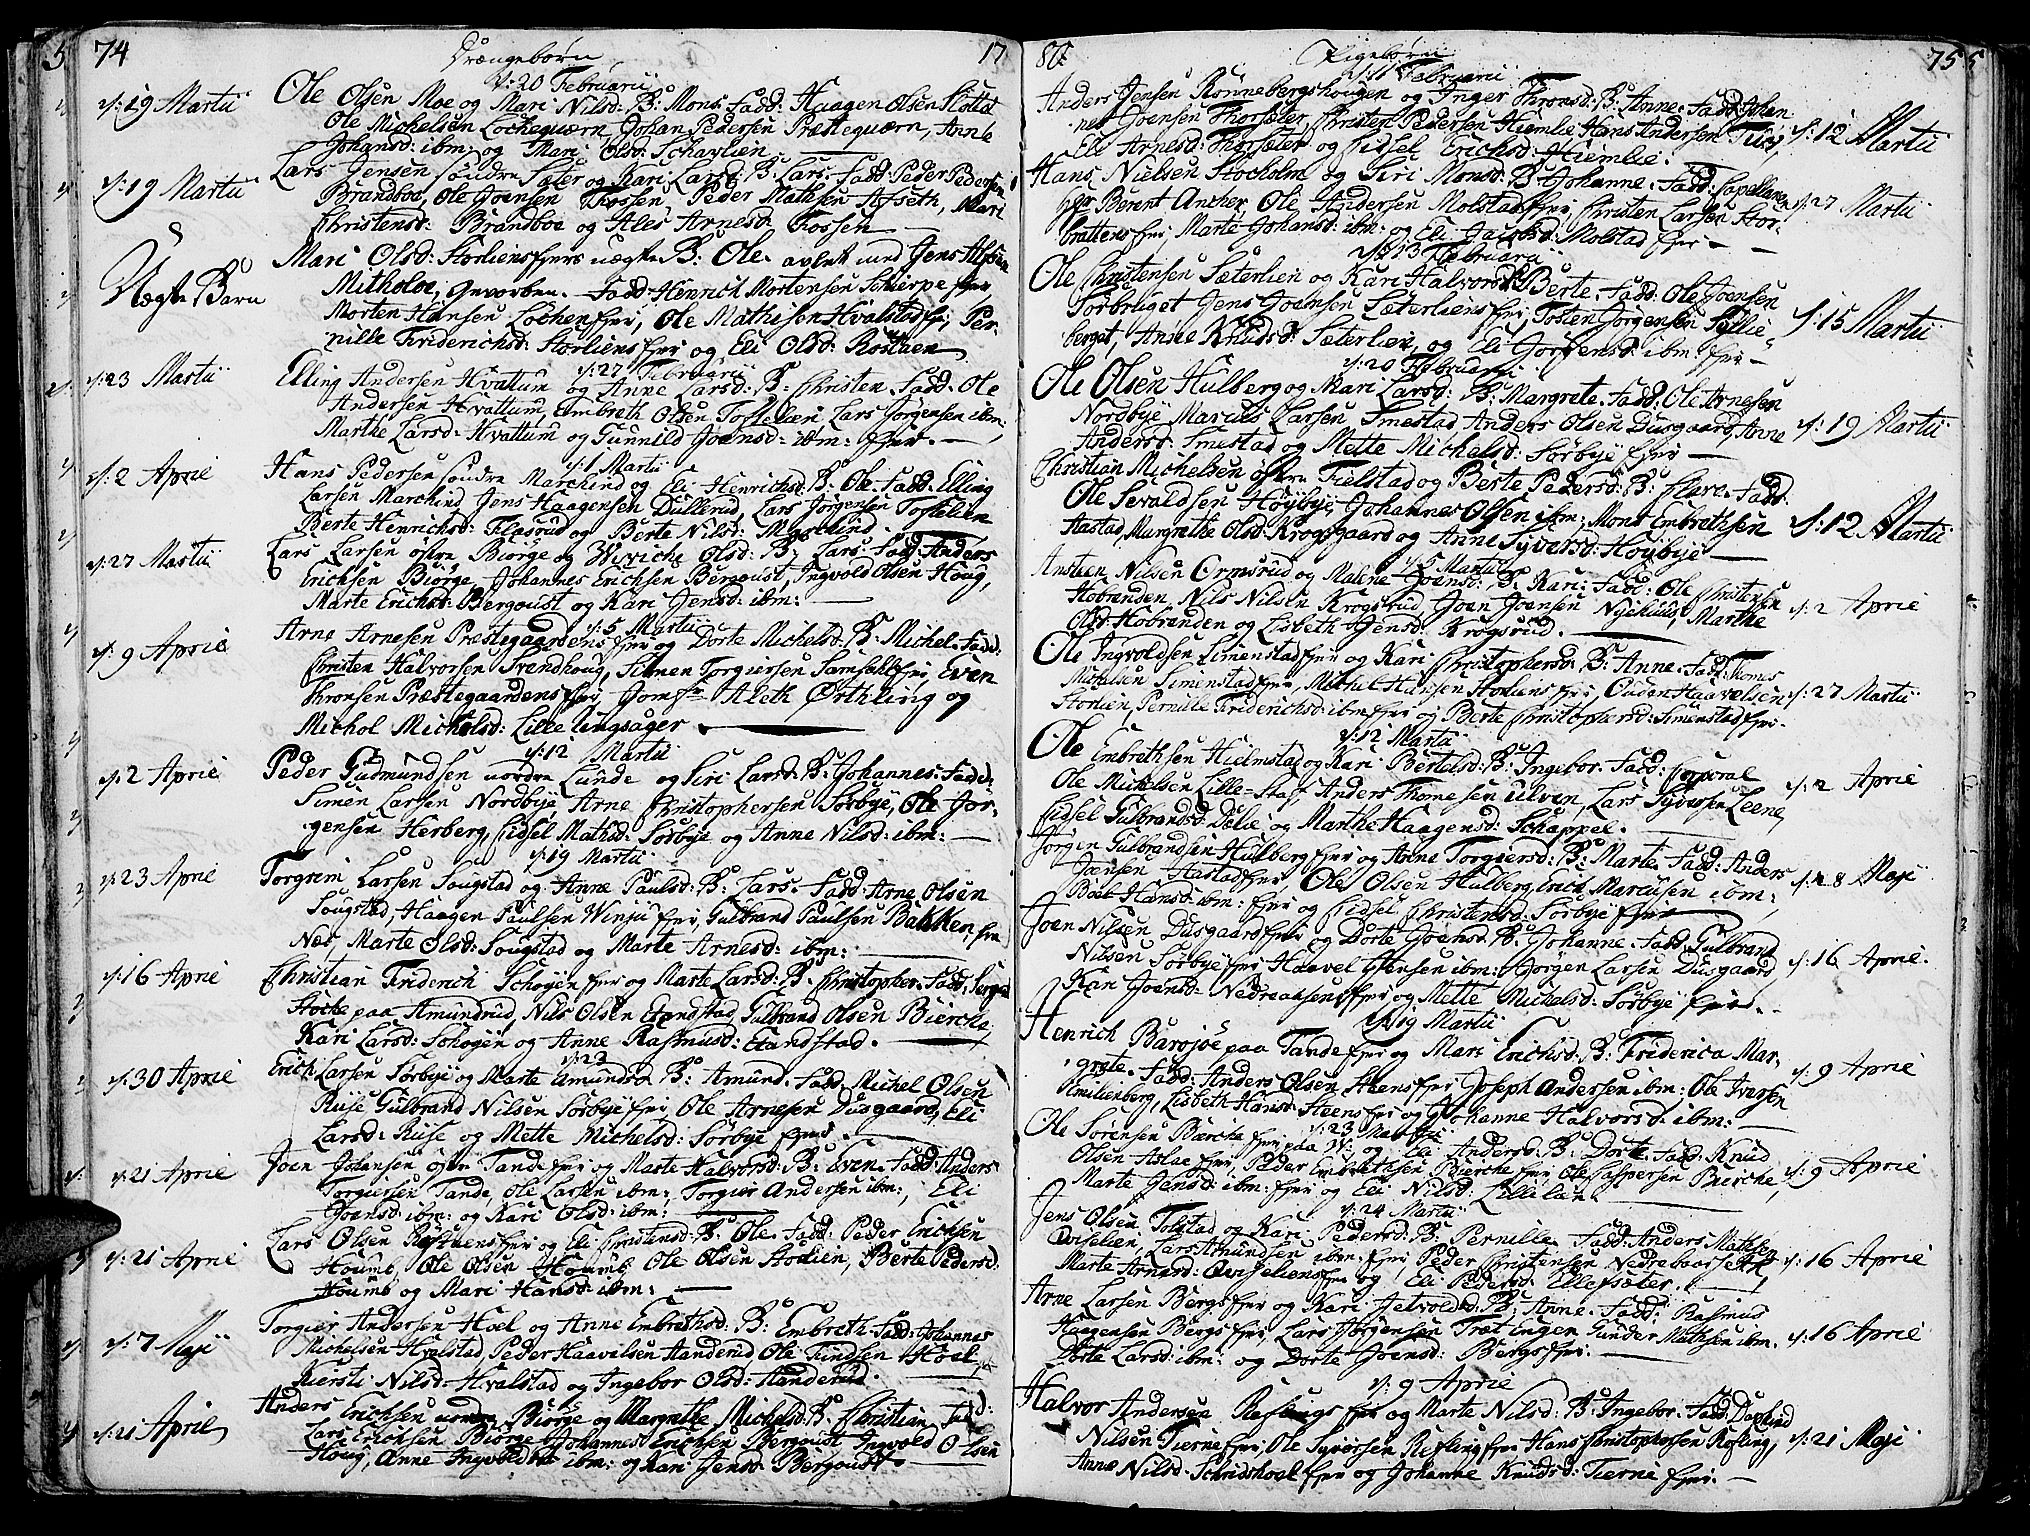 74
Drængebørn
17
d: 20 Februarii
d: 19 Martii
Ole Olsen Moe og Mari Nilsd: B: Mons. Fadd: Haagen Olsen Slottet
Ole Michelsen Lochequærn, Johan Pedersen Præstequærn, Anne
Johansd: ibm: og Mari Olsd: Schavlien.
d: 19 Martii
Lars Jensen søndre Sæter og Kari Larsd: B: Lars. Fadd: Peder Pedersen
Brandboe, Ole Joensen Fossen, Peder Mathsen Afseth, Mari
Christensd: Brandboe og Ales Arnesd: Fossen
Uægte Barn
Mari Olsd: Storliens fjer uægte B: Ole. avlet med Jens
Mitholoe, Fadd: Henrich Mortensen Schierpe fjer,
Morten Hansen Lochen fjer, Ole Mathisen Hvalstad fjer, Per-
nille Friderichsd: Storliens fjer og Eli Olsd: Rostuen
d: 27 Februarii
d: 23 Martii
Elling Andersen Hvattum og Anne Larsd: B: Christen. Fadd: Ole
Andersen Hvattum, Embreth Olsen Tofteleen, Lars Jørgensen ibm:
Marthe Larsd: Hvattum og Gunnild Joensd: ibm: fjer.
d: 1 Martii
d: 2 April
Hans Pedersen søndre Marchind og Eli Henrichsd: B: Ole. Fadd: Elling
Larsen Marchind, Jens Haagensen Dullerud, Lars Jørgensen Toftelien
Berte Henrichsd: Flasrud og Berte Nilsd: Marchind.
d: 27 Martii
Lars Larsen østre Biørge og Wiviche Olsd: B: Lars. Fadd: Anders
Erichsen Biørge, Johannes Erichsen Bergoust, Ingvold Olsen Houg,
Marte Erichsd: Bergoust og Kari Jensd: ibm:
d: 5 Martii
d: 9 April
Arne Arnesen Præstegaardens fjer og Dorte Michelsd: B: Michel. Fadd:
Christen Halvorsen Svendhoug, Simen Torgiersen fjer, Even
Thronsen Præstegaardens fjer, Jomfr Aleth Ørthling og
Michol Michelsd: Lille lingsager
d: 12 Martii
d: 2 April
Peder Gudmundsen nordre Lunde og Siri Larsd: B: Johannes. Fadd:
Simen Larsen Nordbye, Arne Christophersen Sørbye, Ole Jør-
gensen Herberg, Eidsel Mathisd: Sørbye og Anne Nilsd: ibm:
d: 19 Martii
d: 23 April
Torgrim Larsen Sougstad og Anne Paulsd: B: Lars. Fadd: Arne Olsen
Sougstad, Haagen Paulsen Winju fjer, Gulbrand Paulsen Bakken, fra
Næs, Marte Olsd: Sougstad og Marte Arnesd: ibm:
d: 16 April
Christian Friderich Schøyen fjer og Marte Larsd: B: Christopher. Fadd: Serge
Støche paa Amundrud, Nils Olsen Standstad, Gulbrand Olsen Bierche,
Kari Larsd: Schøyen og Anne Rasmusd: Standstad.
d: 23
d: 30 April
Erich Larsen Sørbye og Marte Amundsd: B: Amund. Fadd: Michel Olsen
Ruse, Gulbrand Nilsen Sørbye fjer, Ole Arnesen Dusgaard, Eli
Larsd: Ruse og Mette Michelsd: Sørbye fjer.
d: 21 April
Joen Johansen øvre Tande fjer og Marte Halvorsd: B: Even. Fadd: Anders
Torgiersen Tande, Ole Larsen ibm: Torgier Andersen ibm:, Eli
Joensd: ibm: og Kari Olsd: ibm:
d: 21 April
Lars Olsen Rostuens fjer og Eli Christensd: B: Ole. Fadd: Peder Erichsen
Houmb, Ole Olsen Houmb, Ole Olsen Storlien, Berte Pedersd:
Houmb og Mari Hansd: ibm:
d: 7 Maji
Torgier Andersen Hoel og Anne Embrethsd: B: Embreth. Fadd: Johannes
Michelsen Hvalstad, Peder Haavelsen Handerud, Ole Tundsen Hoel,
Kiersti Nilsd: Hvalstad og Ingebor Olsd: Handerud.
d: 21 April
Anders Erichsen nordre Biørge og Margrethe Michelsd: B: Christian. Fadd:
Lars Erichsen Biørge, Johannes Erichsen Bergoust, Ingvold Olsen
Houg, Anne Ingvoldsd: ibm: og Kari Jensd: Bergoust.
87
Pigebørn
75
d: 11 Februarii
Anders Jensen Rønnebergshougen og Inger Thronsd: B: Anne. Fadd: Johan-
nes Joensen Thorsæter, Christen Pedersen Hiemlie, Hans Andersen
Eli Arnesd: Thorsæter og Eidsel Erichsd: Hiemlie.
d: 12 Martii
Hans Nielsen Stocholm og Siri Monsd: B: Johanne. Fadd: Capellanen
hr Berent Ancher, Ole Andersen Molstad fjer, Christen Larsen Stor-
brattens fjer, Marte Johansd: ibm: og Eli Jacobsd: Molstad fjer
d: 27 Martii
d: 13 Februarii
Ole Christensen Sæterlien og Kari Halvorsd: B: Berte. Fadd: Ole Joensen
Sørbruget, Jens Joensen Sæterliens fjer, Tosten Jørgensen Sollie-
berget, Anne Knudsd: Sæterlien, og Eli Jørgensd: ibm: fjer
d: 15 Martii
d: 20 Februarii
Ole Olsen Hulberg og Mari Larsd: B: Margrete. Fadd: Ole Arnesen
Nordbye, Marcus Larsen Smestad, Anders Olsen Dusgaard, Anne
Andersd: Smestad og Mette Michelsd: Sørbye fjer
d: 19 Martii
Christian Michelsen østre Fielstad og Berte Pedersd: B: Clare. Fadd:
Ole Sevaldsen Høybye, Johannes Olsen ibm: Mons Embrethsen
Aastad, Margrethe Olsd: Krogsgaard og Anne Syversd: Høybye
d: 12 Martii
d: 5 Martii
Amsteen Nilsen Ormsrud og Malene Joensd: B: Kari. Fadd: Ole Christensen
Hobrenden, Nils Nilsen Krogsrud, Joen Joensen Nyehuus, Marthe
Olsd: Hobrenden og Lisbeth Jensd: Krogsrud.
d: 2 April
Ole Ingvoldsen Simenstad fjer og Kari Christophersd: B: Anne. Fadd: Thomes
Michelsen Simenstad fjer, Michel Hansen Storliens fjer, Ouden Haavelsen
Storlien, Pernille Friderichsd: ibm fjer og Berte Christophersd: Simenstad fjer.
d: 27 Martii
d: 12 Martii
Ole Embrethsen Hielmstad og Kari Bertelsd: B: Ingebor. Fadd: Corporal
Ole Michelsen Lille-Staf, Anders Thomesen Ulven, Lars Syversen Leene,
Eidsel Gulbrandsd: Dælie og Marthe Haagensd: Schappel.
d: 2 April
Jørgen Gulbrandsen Hulberg fjer og Anne Torgiersd: B: Marte. Fadd: Anders
Jensen Hastad fjer, Ole Olsen Hulberg, Erich Marcusen ibm:
Boel Hansd: ibm: fjer og Eidsel Christensd: Sørbye fjer
d: 28 Maji
Joen Nilsen Dusgaard fjer og Dorte Joensd: B: Johanne. Fadd: Gulbrand
Nilsen Sørbye fjer, Haavel Jensen ibm: Jørgen Larsen Dusgaard,
Kari Joensd: Nedreaasens fjer, og Mette Michelsd: Sørbye fjer.
d: 16 April.
d: 19 Martii
Henrich Barojoe paa Tande fjer og Mari Erichsd: B: Friderica Mar-
grete. Fadd: Anders Olsen Steens fjer, Joseph Andersen ibm: Ole Iversen
Emilienberg, Lisbeth Hansd: Steens fjer og Johanne Halvorsd: ibm:
d: 9 April
d: 23 Martii
Ole Sørensen Bierche fjer og Eli Andersd: B: Dorte. Fadd: Knud
Olsen Aslae fjer, Peder Embrethsen Bierche fjer, Ole Caspersen Bierche,
Marte Jensd: ibm: fjer og Eli Nilsd: Lillelan.
d: 9 April
d: 24 Martii
Jens Olsen Tolstad og Kari Pedersd: B: Pernille. Fadd: Anders Mathsen
Qviselien, Lars Amundsen ibm: fjer, Peder Christensen Nedrebaarseth
Marte Arnesd: Qviseliens fjer og Eli Pedersd: Ellefsæter.
d: 16 April
Arne Larsen Bergs fjer og Kari Jetvolsd: B: Anne. Fadd: Rasmus
Haagensen Bergs fjer, Lars Jørgensen Træt Engen, Gunder Mathsen ibm.
Dorte Larsd: ibm: og Dorte Joensd: Bergs fjer.
d: 16 April
d: 9 April
Halvor Andersen Reflings fjer og Marte Nilsd: B: Ingebor. Fadd: Daphind
Nilsen Tierne fjer, Ole Syversen Refling fjer, Hans Christophersen Refling,
Anne Nilsd: Schridshoel fjer og Johanne Knudsd: Tierne fjer.
d: 21 Maji